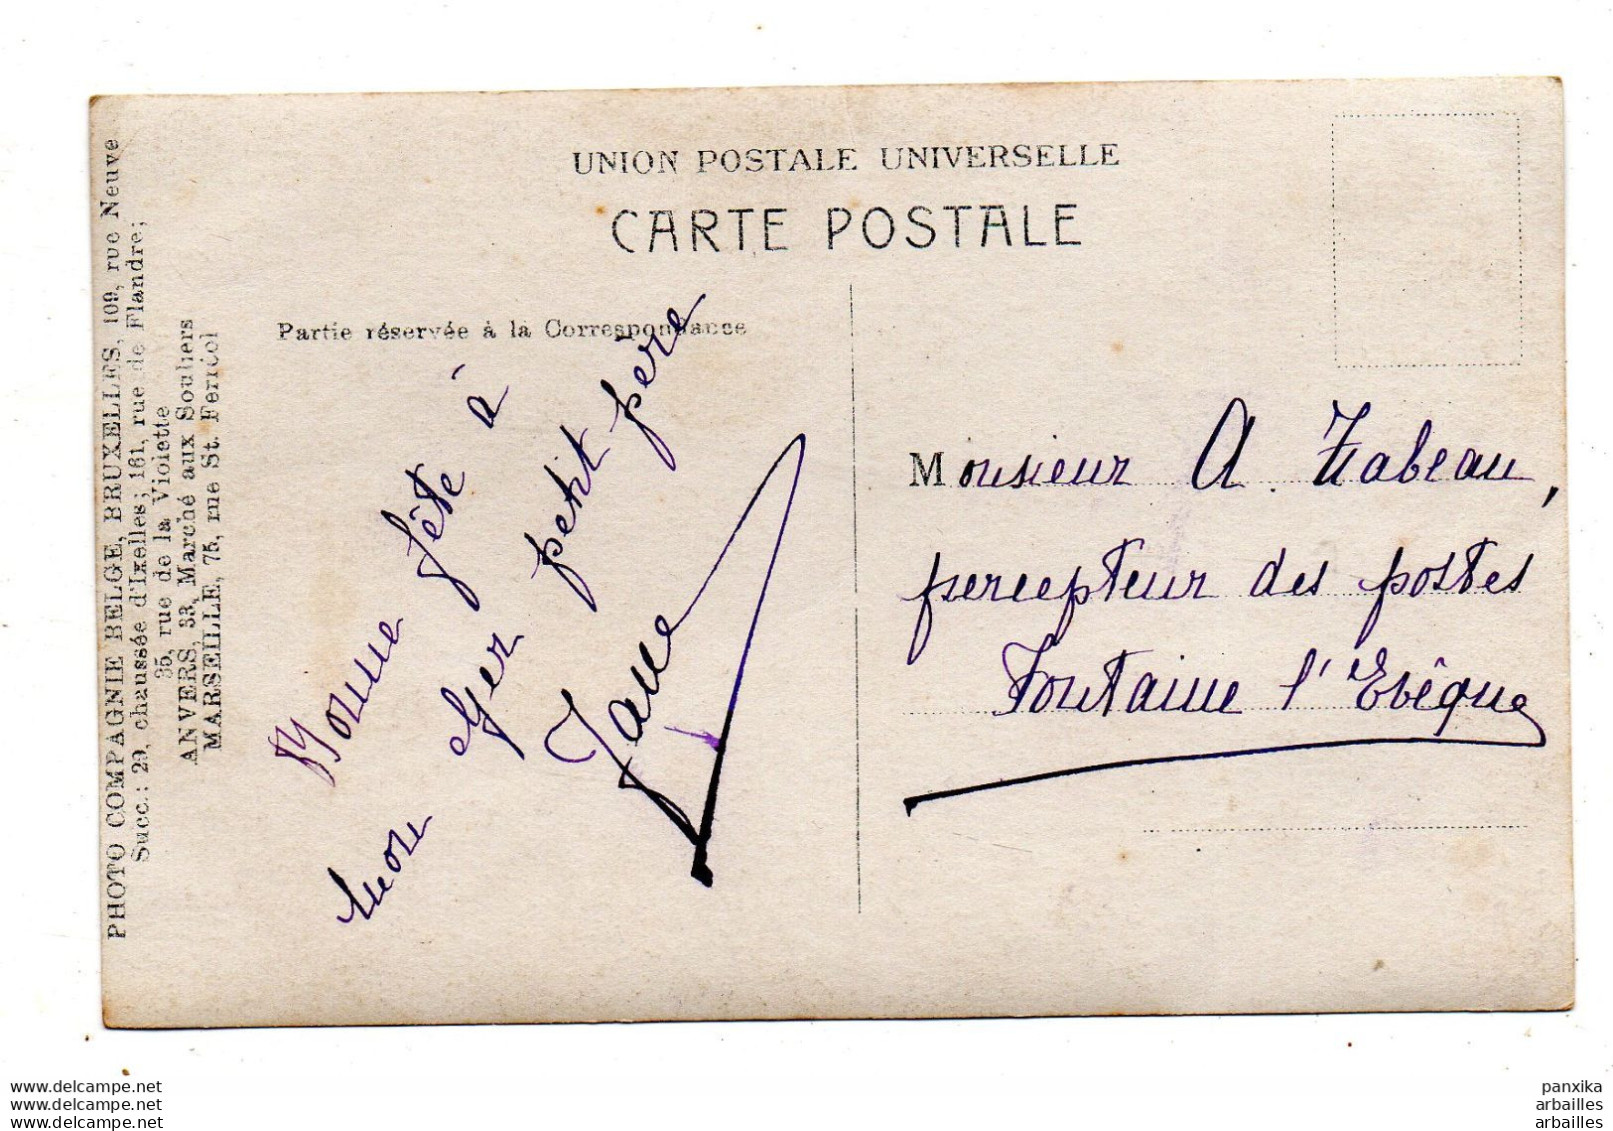 UNION POSTALE UNIVERSELLE
CARTE POSTALE
Partie réservée à la Correspondance
PHOTO COMPAGNIE BELGE, BRUXELLES, 109, rue Neuve
Succ.: 29, chaussée d'Ixelles; 161, rue de Flandre;
35, rue de la Violette
ANVERS, 33, Marché aux Souliers
MARSEILLE, 75, rue St. Ferréol
Bonne fête à
mon cher petit père
Jane
Monsieur A. Habeau,
percepteur des postes
Fontaine l'Evêque
www.delcampe.net
www.delcampe.net
www.delcampe.net
panxika
arbailles
arbailles